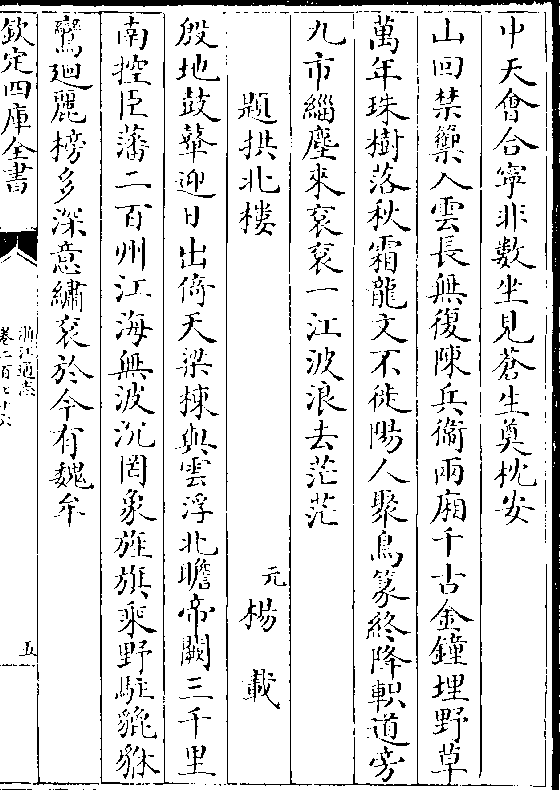 中天會合寧非數坐見蒼生奠枕安
山回禁籞入雲長無復陳兵衞兩廂千古金鐘埋野草
萬年珠樹落秋霜龍文不徙陽人聚鳥篆終降軹道旁
九市緇塵來衮衮一江波浪去茫茫
題拱北樓
元楊載
殷地鼓鼙迎日出倚天梁棟與雲浮北瞻帝闕三千里
南控臣藩二百州江海無波沉罔象旌旗乘野駐貔貅
鸞廻麗榜多深意繡衮於今有魏牟
欽定四庫全書
浙江通志
卷二百七十六
五